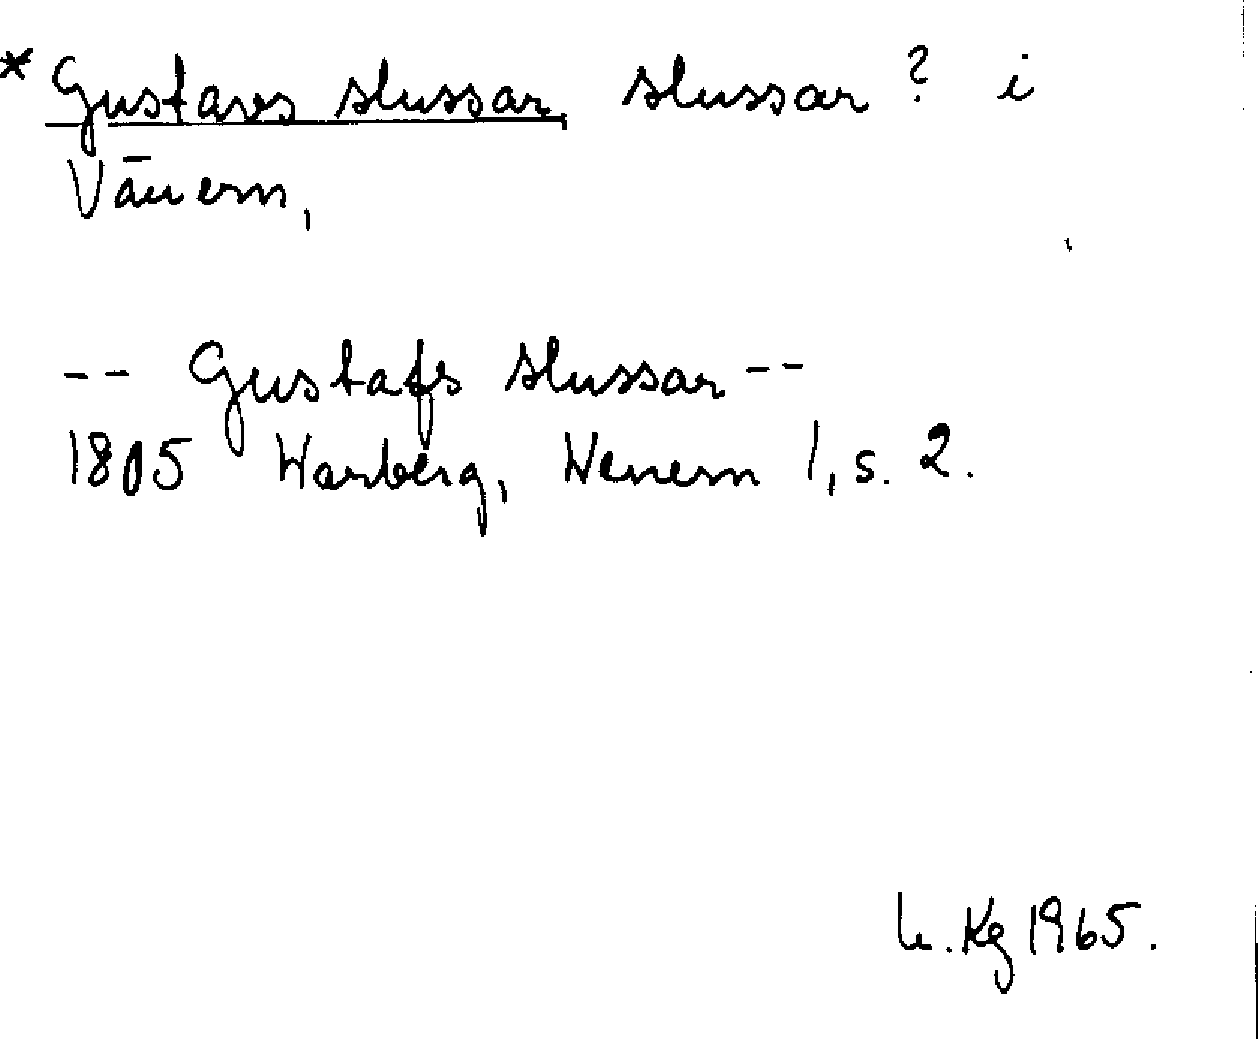 * Gustavs slussar, slussar ? i
Vänern,
-- Gustafs slussar --
1805 Warberg, Wenern 1, s. 2.
h. Kg 1965.